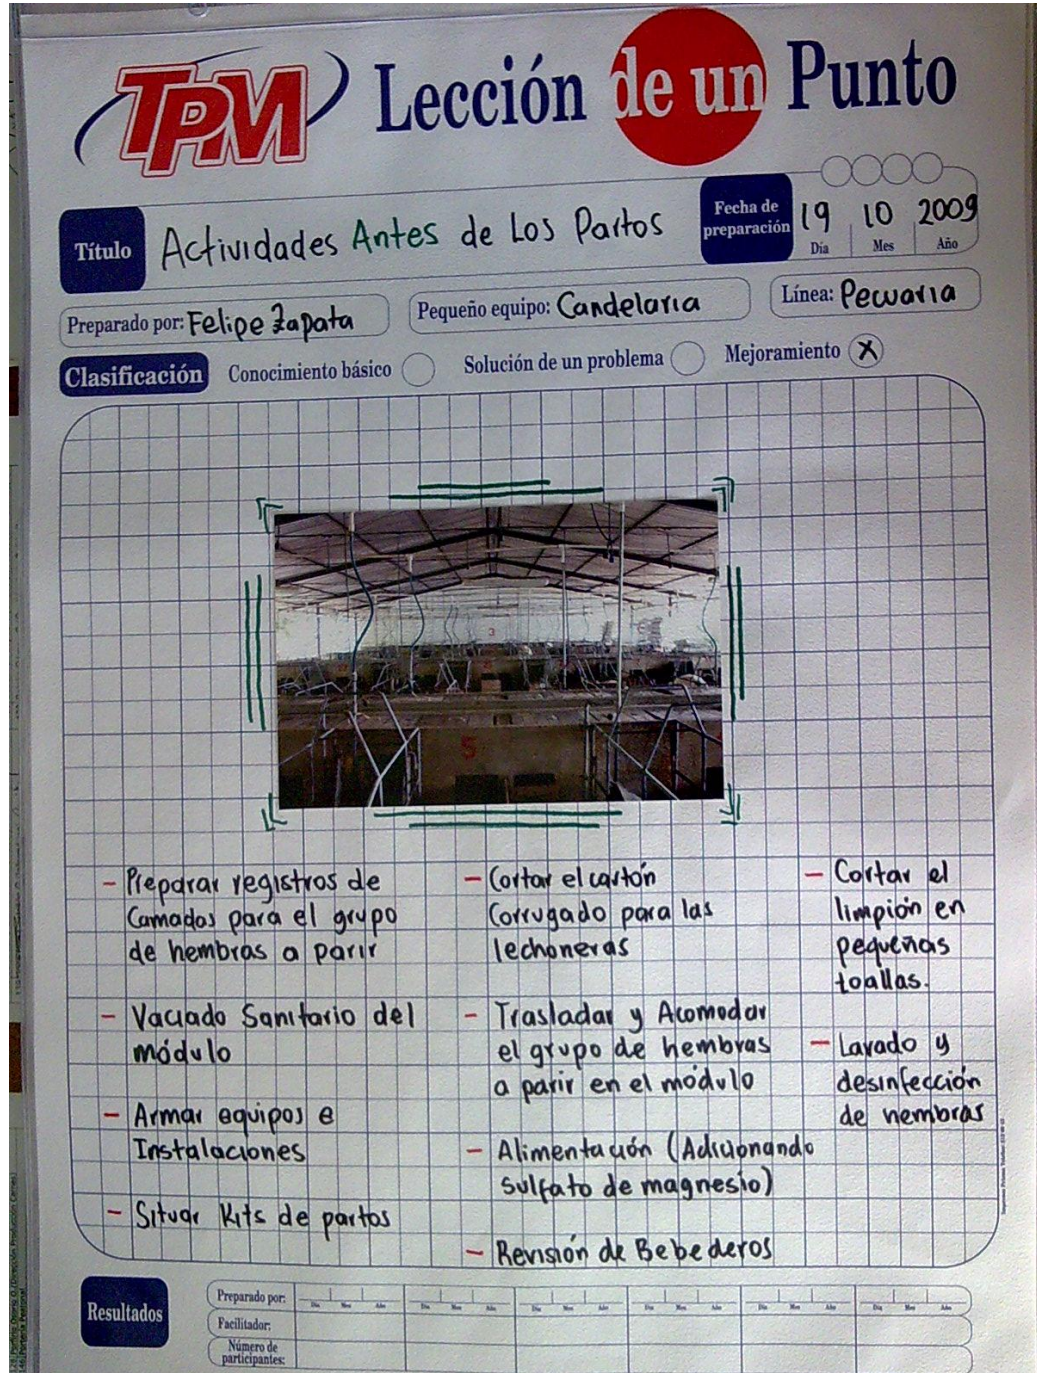 TPM Lección de un Punto
Título
Actividades Antes de Los Partos
Fecha de preparación
19 10 2009
Día Mes Año
Preparado por: Felipe Zapata
Pequeño equipo: Candelaria
Línea: Pecuaria
Clasificación
Conocimiento básico
Solución de un problema
Mejoramiento X
3
5
- Preparar registros de
Camadas para el grupo
de hembras a parir
- Vaciado Sanitario del
módulo
- Armar equipos e
Instalaciones
- Situar Kits de partos
- Cortar el cartón
Corrugado para las
lechoneras
- Trasladar y Acomodar
el grupo de hembras
a parir en el módulo
- Alimentación (Adicionando
sulfato de magnesio)
- Revisión de Bebederos
- Cortar el
limpión en
pequeñas
toallas.
- Lavado y
desinfección
de hembras
Resultados
Preparado por:
Día Mes Año Día Mes Año Día Mes Año Día Mes Año Día Mes Año Día Mes Año
Facilitador:
Número de
participantes: